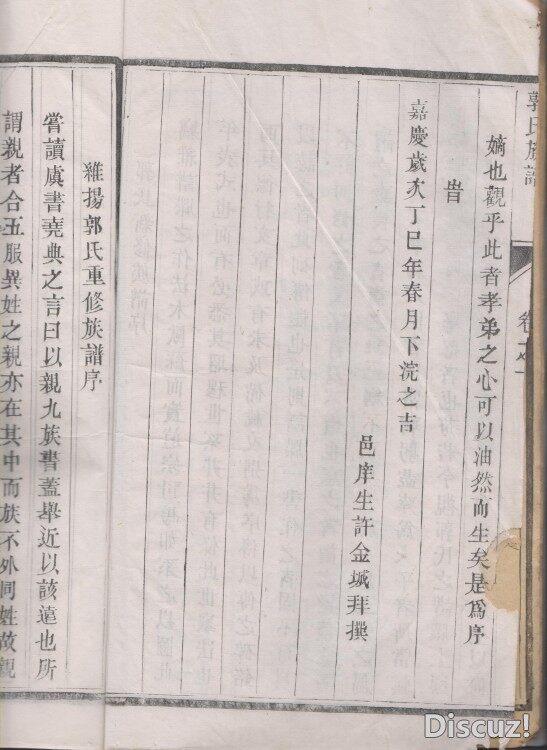 郭氏族譜
嫡也觀乎此者孝弟之心可以油然而生矣是爲序
旹
嘉慶歲次丁巳年春月下浣之吉
邑庠生許金城拜撰
維揚郭氏重修族譜序
嘗讀虞書堯典之言曰以親九族書蓋舉近以該遠也所
謂親者合五服異姓之親亦在其中而族不外同姓故親
Discuz!